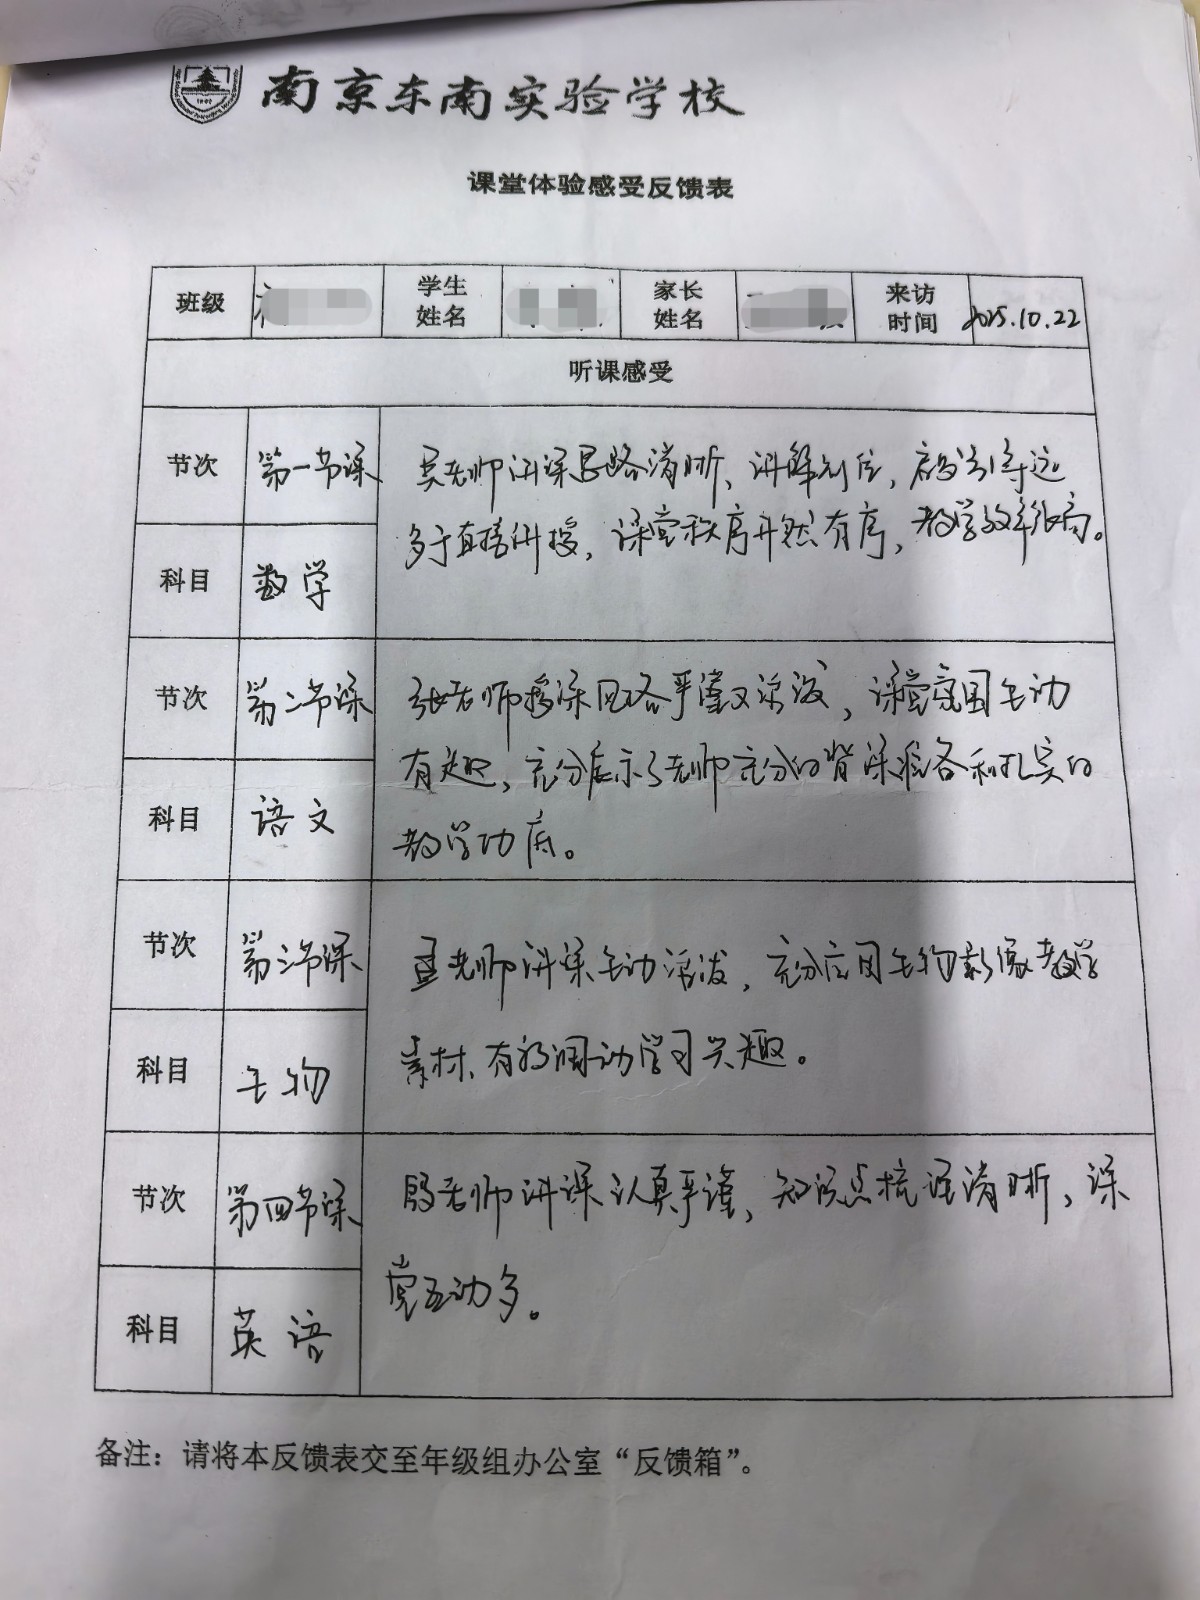 南京东南实验学校
课堂体验感受反馈表
班级 学生姓名 家长姓名 来访时间 2025.10.22
听课感受
节次 第一节课
吴老师讲课思路清晰、讲解到位，启发引导远
多于直接讲授，课堂秩序井然有序，教学效率很高。
科目 数学
节次 第二节课
张老师授课风格严谨又活泼，课堂氛围生动
有趣，充分展示了老师充分的背课准备和扎实的
教学功底。
科目 语文
节次 第三节课
孟老师讲课生动活泼，充分应用生物影像教学
素材、有效调动学习兴趣。
科目 生物
节次 第四节课
殷老师讲课认真严谨，知识点梳理清晰，课
堂互动多。
科目 英语
备注：请将本反馈表交至年级组办公室“反馈箱”。